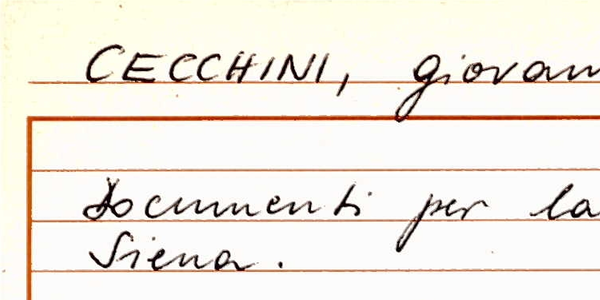 CECCHINI, giovann
Documenti per la
Siena.